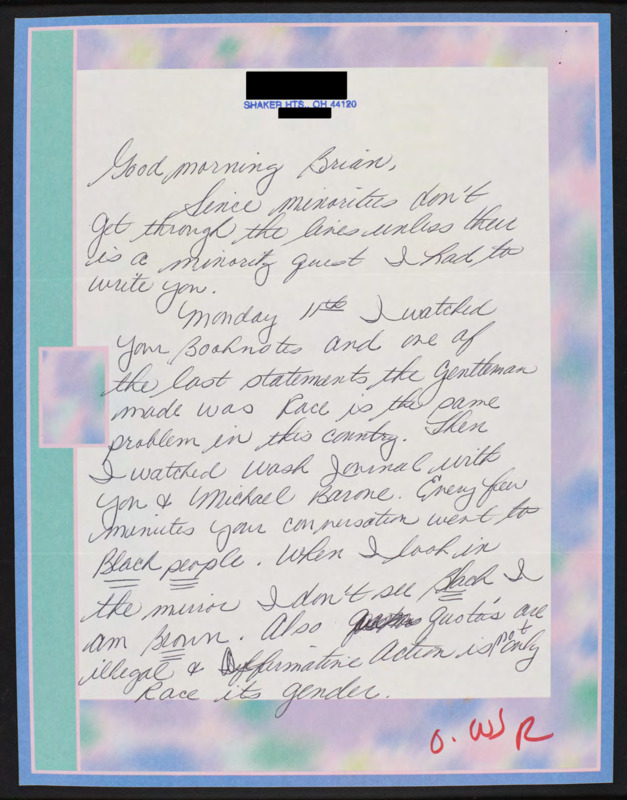 SHAKER HTS., OH 44120
Good morning Brian,
Since minorities don't
get through the lines unless there
is a minority guest I had to
write you.
Monday 11th I watched
your Booknotes and one of
the last statements the Gentleman
made was Race is the same
problem in this country. Then
I watched Wash Journal with
you & Michael Barone. Every few
minutes your conversation went to
Black people. When I look in
the mirror I don't see Black I
am Brown. Also quota's are
illegal & Affirmative Action is not only
Race its gender.
O. WJ R